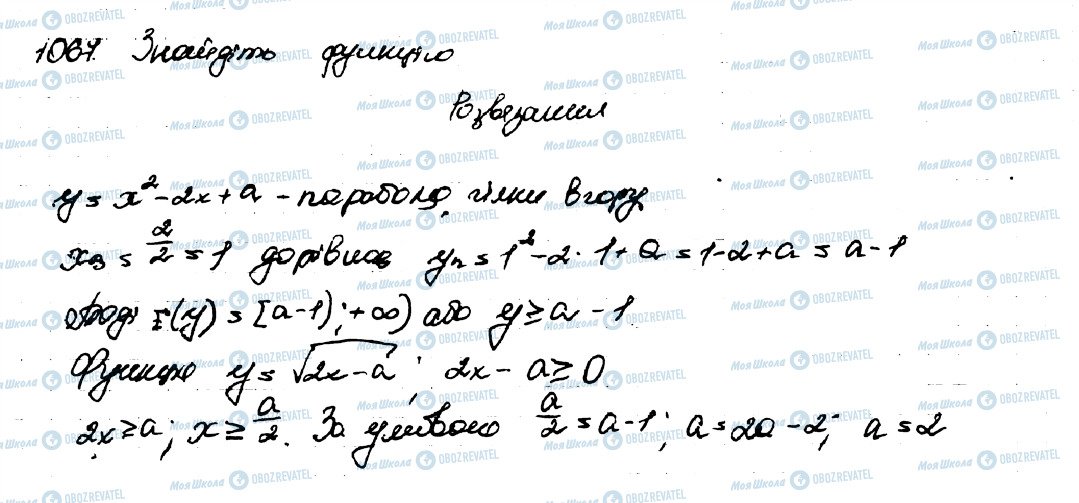 1067. Знайдіть функцію
Розв'язання
y = x² - 2x + a - парабола, гілки вгору
xв = 2/2 = 1 дорівнює yв = 1² - 2 · 1 + a = 1 - 2 + a = a - 1
тоді E(y) = [a - 1); +∞) або y ≥ a - 1
Функцію y = √(2x - a); 2x - a ≥ 0
2x ≥ a; x ≥ a/2. За умовою a/2 = a - 1; a = 2a - 2; a = 2